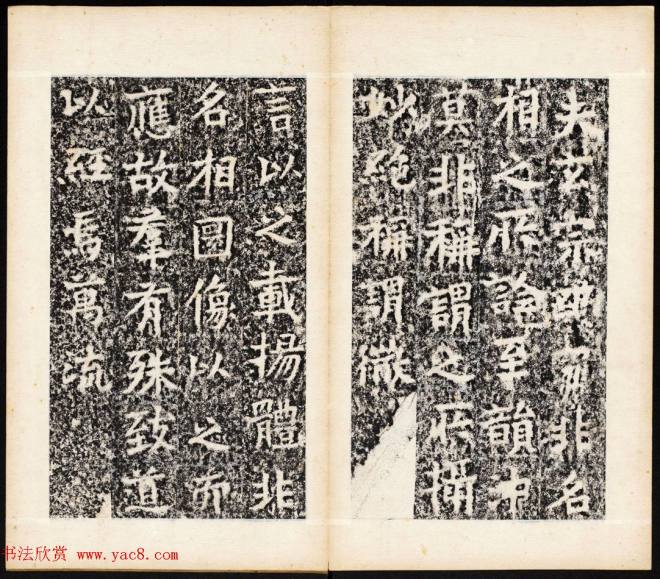 夫玄宗幽寂非名
相之所論至韻中
莫非稱謂之所攝
妙絕稱謂微
言以之載揚體非
名相圖像以之而
應故羣有殊致道
以焉萬流
书法欣赏 www.yac8.com